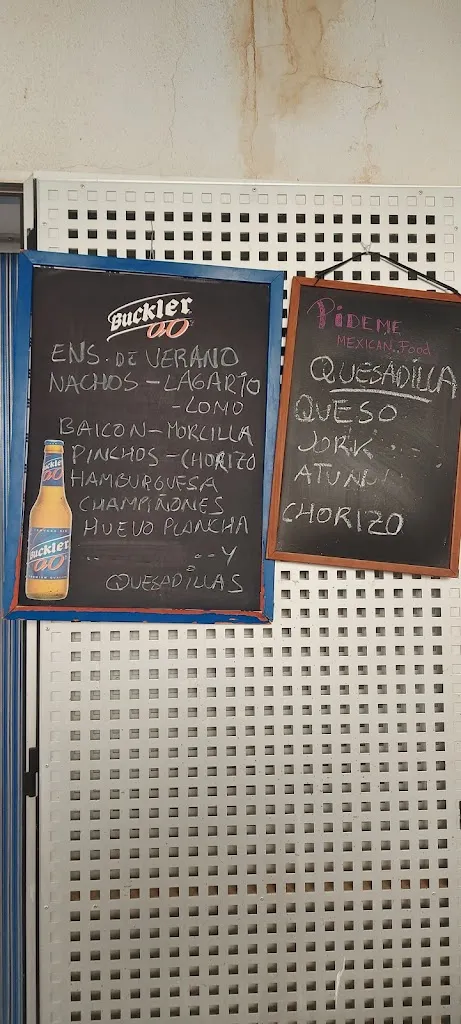 Buckler
0,0
ENS. DE VERANO
NACHOS - LAGARTO
- LOMO
BAICON - MORCILLA
PINCHOS - CHORIZO
HAMBURGUESA
CHAMPIÑONES
HUEVO PLANCHA
.. ..Y
QUESADILLAS
Buckler
0,0
Buckler
0,0
PiDEME
MEXICAN Food
QUESADILLA
QUESO
JORK
ATUN
CHORIZO